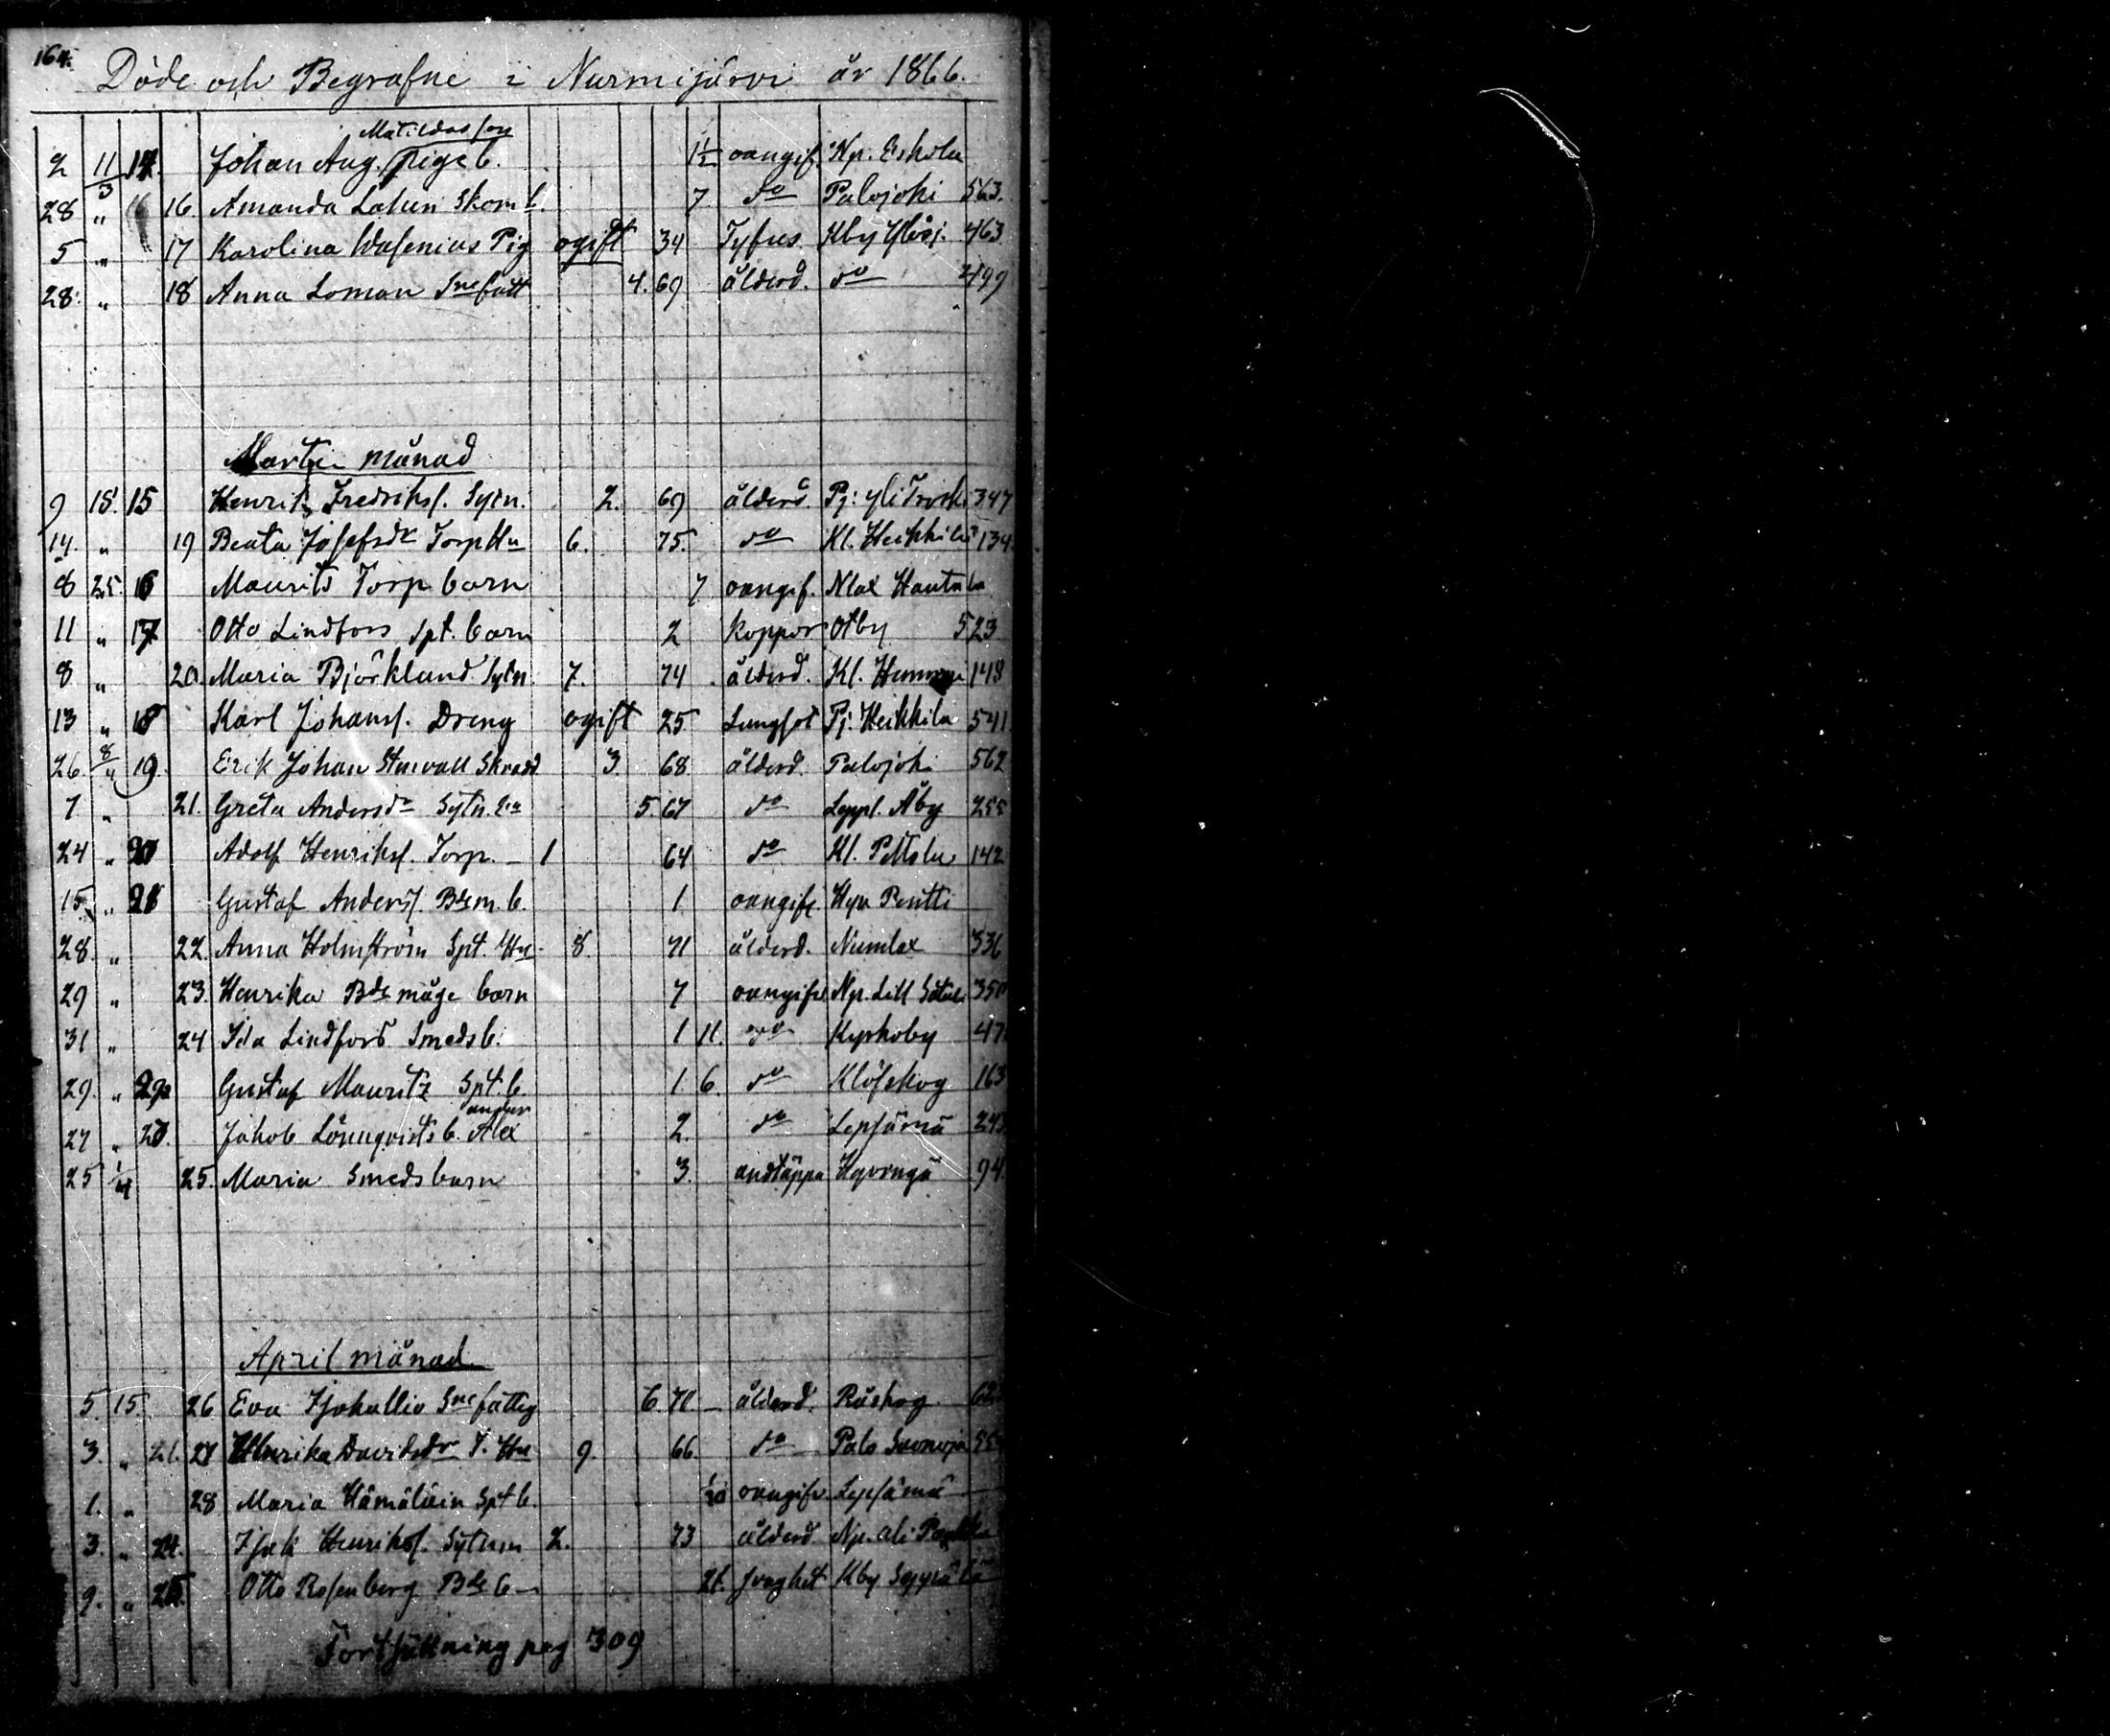 164.
Döde och Begrafne i Nurmijärvi år 1866.
Matildas son
2 11/3 14. Johan Aug. pige b. 1½ oangif. Np. Eskola
28 " 16 Amanda Latun Skom b. 7 do Palojoki 563.
5 " 17 Karolina Wasenius Pig ogift 34 Tyfus Kby Ylösj. 463
28. " 18 Anna Loman Sne fatt 4. 69 ålderd. do 499
Martii månad
9 18. 15 Henrik Fredriksf. Sytn. 2. 69 ålderd. Pj: yli 347
14. " 19 Beata Josefsdr Torp Hu 6. 75. do Kl. Heikkilä 134
8 25. 16 Maurits Torp barn 7 oangif. Nlax Hautala
11 " 17 Otto Lindfors Spt. barn 2 koppor Otby 523
8 " 20. Maria Björklund Sytn. 7. 74 ålderd. Kl. 148
13 " 18 Karl Johansf. Dreng ogift 25. Lungsot Pj: Heikkila 541
26. 8/4 19. Erik Johan Skradd 3. 68. ålderd. Palojoki 562
7 " 21. Greta Andersdr Sytn. 5. 67 do Leppl. Åby 255
24 " 20 Adolf Henriksf. Torp. – 1 64 do Kl. 142
15. " 21 Gustaf Andersf. Bdem. b. 1 oangifv. Hyv Pentti
28. " 22. Anna Holmström Spt. Hu 8. 71 ålderd. Numlax 336
29 " 23. Henrika Bde måge barn 7 oangifv. Np. Lill 350
31 " 24 Ida Lindfors Smeds b. 1 11. do Kyrkoby 47
29. " 22 Gustaf Mauritz Spt. b. 1. 6. do Klöfskog 163
ander
27 " 23. Jakob Lönnqvists b. Alex 2. do Lepsämä 243
25 1/4 25. Maria Smeds barn 3. andtäppa Hyvingä 94
April månad
5. 15. 26 Eva Isokallio Sne fattig 6. 71. – ålderd. Råskog 62
3. " 27 Ulrika Davidsdr T. Hu 9. 66 do Palo
1. " 28. Maria Hämäläin Spt b. oangifv. Lepsämä
3. " 24. Isak Henriksf. Sytnm 2. 73 ålderd. Np. ali
9. " 25. Otto Rosenberg Bde b – 21. svaghet Kby Seppälä
Fortsättning pag 309